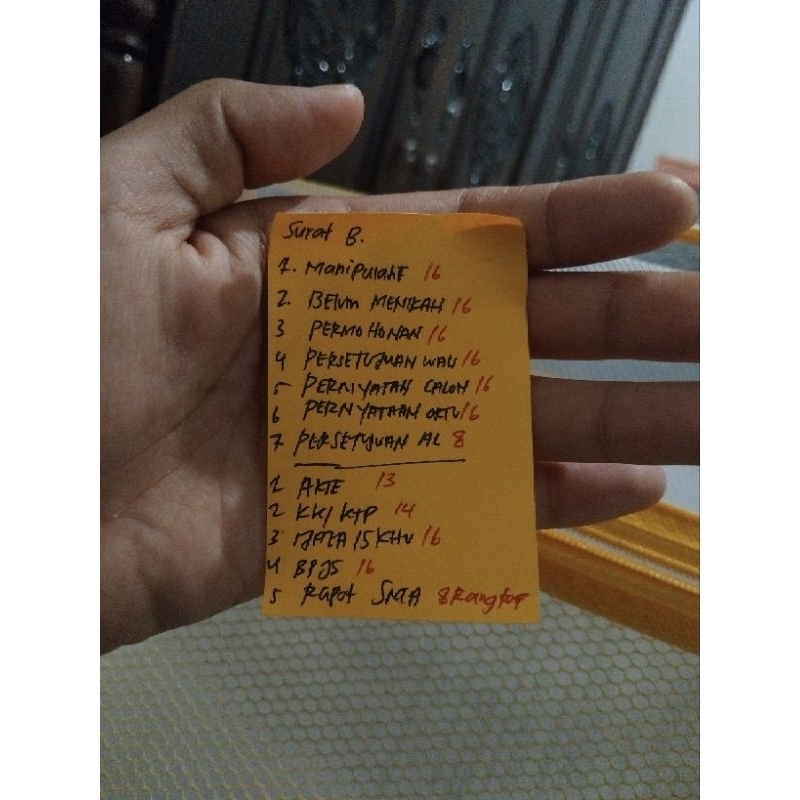 Surat B.
1. Manipulatif 16
2. BELUM MENIKAH 16
3 PERMOHONAN 16
4 PERSETUJUAN WALI 16
5 PERNIYATAH CALON 16
6 PERNYATAAN ORTU 16
7 PERSETUJUAN AL 8
1 AKTE 13
2 KK/KTP 14
3 IJAZA/SKHU 16
4 BPJS 16
5 RAPot SMA 8 Rangkap